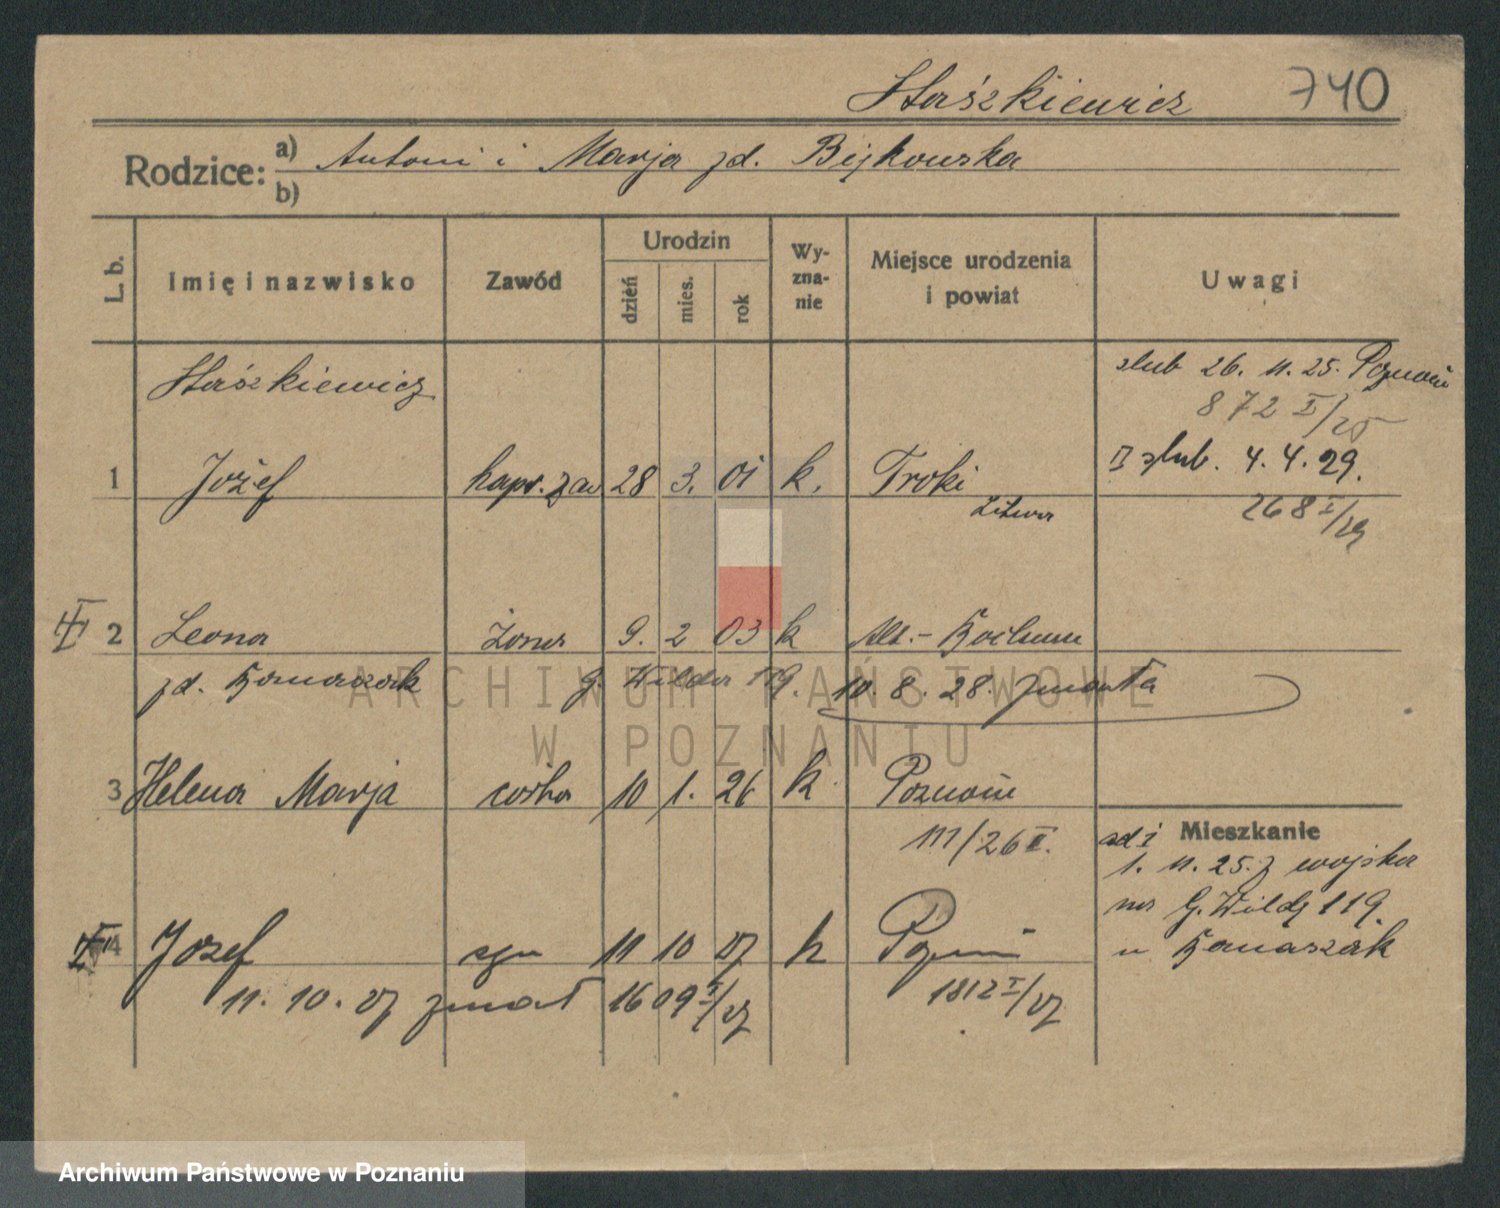 Staśzkiewicz 740
Rodzice: a) Antoni i Marja zd. Bijkowska
b)
L. b. Imię i nazwisko Zawód Urodzin dzień mies. rok Wyznanie Miejsce urodzenia i powiat Uwagi
Staśzkiewicz ślub 26. 11. 25. Poznań
872 I/25
1 Józef kapr. zaw 28 3. 01 k. Troki II ślub. 4. 4. 29.
Litwa 268 I/29
2 Leona żona 9. 2 03 k Alt.-Bochum
zd. Banaszak G. Wilda 119. 10. 8. 28. zmarła
3 Helena Marja córka 10 1. 26 k Poznań
111/26 II. Mieszkanie
1. 11. 25. z wojska
na G. Wildę 119.
4 Jozef syn 11 10 27 k Poznań u Banaszak
11. 10. 27 zmarł 1609 I/27 1812 I/27
ARCHIWUM PAŃSTWOWE
W POZNANIU
Archiwum Państwowe w Poznaniu